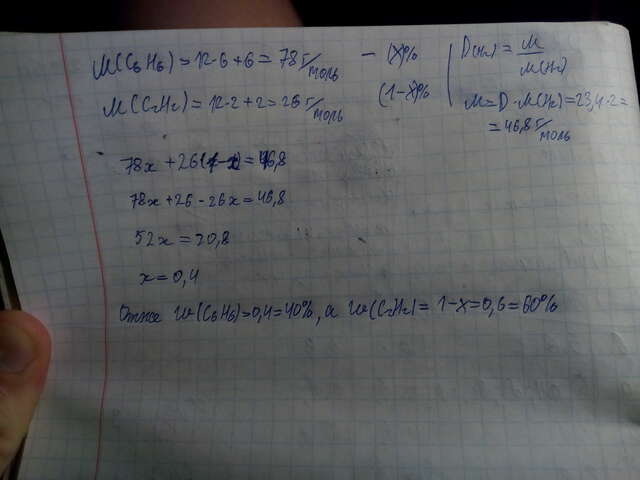 M(C₆H₆) = 12·6+6 = 78 г/моль — (x)%
M(C₂H₂) = 12·2+2 = 26 г/моль (1-x)%
D(H₂) = M/M(H₂)
M = D·M(H₂) = 23,4·2 =
= 46,8 г/моль
78x + 26(1-x) = 46,8
78x + 26 - 26x = 46,8
52x = 20,8
x = 0,4
Отже w(C₆H₆) = 0,4 = 40%, а w(C₂H₂) = 1-x = 0,6 = 60%